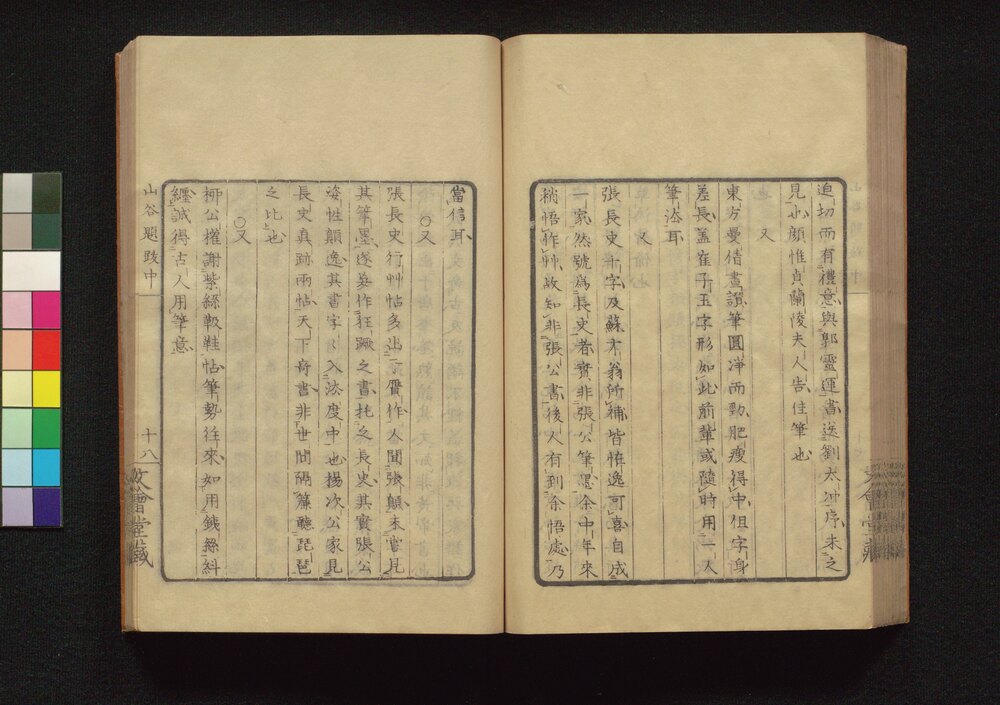 迫切而有禮意與郭靈運書送劉太冲序未之
見也顔惟貞蘭陵夫人告佳筆也
又
東方曼倩畫讃筆圓淨而勁肥瘦得中但字身
差長蓋崔子玉字形如此前輩或隨時用一人
筆法耳
又
張長史十字及蘇才翁所補皆恠逸可喜自成
一家然號爲長史者實非張公筆墨余中年來
稍悟作艸故知非張公書後人有到余悟處乃
當信耳
○又
張長史行艸帖多出於贋作人聞張顛未嘗見
其筆墨遂妄作狂蹶之書托之長史其實張公
姿性顛逸其書字字入法度中也楊次公家見
長史真跡兩帖天下奇書非世間隔簾聽琵琶
之比也
○又
柳公權謝紫絲靸鞋帖筆勢往來如用鐵絲糾
纒誠得古人用筆意
山谷題跋中
十八
文會堂藏